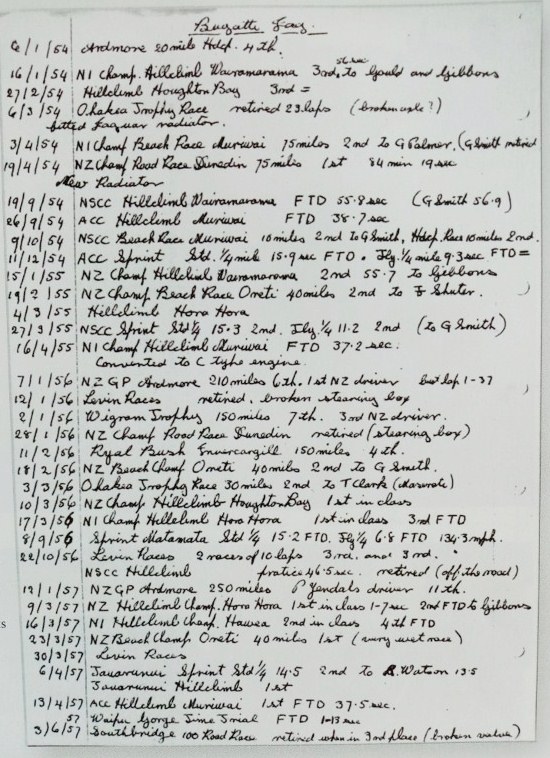 Bugatti Jag.
6/1/54 Ardmore 20 mile Hdcp. 4th.
56 sec
16/1/54 NI Champ. Hillclimb Wairamarama 3rd, to Gould and Gibbons
27/2/54 Hillclimb Houghton Bay 3rd =
6/3/54 Ohakea Trophy Race retired 23 laps (broken axle?)
fitted Jaguar radiator.
3/4/54 NI Champ Beach Race Muriwai 75 miles 2nd to G Palmer. (G Smith retired
19/4/54 NZ Champ Road Race Dunedin 75 miles 1st 84 min 19 sec
New Radiator
19/9/54 NSCC Hillclimb Wairamarama FTD 55.8 sec (G Smith 56.9)
26/9/54 ACC Hillclimb Muriwai FTD 38.7 sec
9/10/54 NSCC Beach Race Muriwai 10 miles 2nd to G Smith, Hdcp. Race 10 miles 2nd.
11/12/54 ACC Sprint Std. 1/4 mile 15.9 sec FTD. Fly. 1/4 mile 9.3 sec FTD =
15/1/55 NZ Champ Hillclimb Wairamarama 2nd 55.7 to Gibbons
19/2/55 NZ Champ Beach Race Oreti 40 miles 2nd to F Shuter.
4/3/55 Hillclimb Hora Hora
27/3/55 NSCC Sprint Std 1/4 15.3 2nd. Fly 1/4 11.2 2nd (to G Smith)
16/4/55 NI Champ Hillclimb Muriwai FTD 37.2 sec.
Converted to C type engine.
7/1/56 NZ GP Ardmore 210 miles 6th. 1st NZ driver best lap 1-37
12/1/56 Levin Races retired, broken stearing box
2/1/56 Wigram Trophy 150 miles 7th. 3rd NZ driver.
28/1/56 NZ Champ Road Race Dunedin retired (stearing box)
11/2/56 Ryal Bush Invercargill 150 miles 4th.
18/2/56 NZ Beach Champ Oreti 40 miles 2nd to G Smith.
3/3/56 Ohakea Trophy Race 30 miles 2nd to T Clark (Maserati)
10/3/56 NZ Champ Hillclimb Houghton Bay 1st in class
17/3/56 NI Champ Hillclimb Hora Hora 1st in class 3rd FTD
8/9/56 Sprint Matamata Std 1/4 15.2 FTD. Fly 1/4 6.8 FTD 134.3 mph.
22/10/56 Levin Races 2 races of 10 laps 3rd. and 3rd.
NSCC Hillclimb pratice 46.5 sec. retired (off the road)
12/1/57 NZ GP Ardmore 250 miles P Yendals driver 11th.
9/3/57 NZ Hillclimb Champ. Hora Hora 1st in class 1-7 sec 2nd FTD to Gibbons
16/3/57 NI Hillclimb Champ. Hawea 2nd in class 4th FTD
23/3/57 NZ Beach Champ Oreti 40 miles 1st (very wet race)
30/3/57 Levin Races
6/4/57 Tauaranui Sprint Std 1/4 14.5 2nd to R. Watson 13.5
Tauaranui Hillclimb 1st
13/4/57 ACC Hillclimb Muriwai 1st FTD 37.5 sec.
57 Waipu Gorge Time Trial FTD 1-13 sec
3/6/57 Southbridge 100 Road Race retired when in 3rd place (broken valve)
s